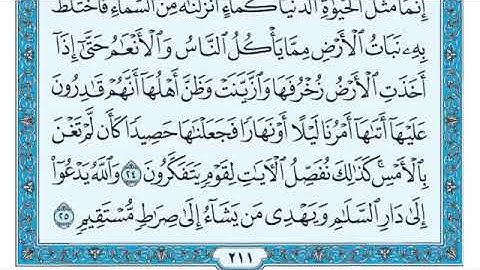 إِنَّمَا مَثَلُ ٱلْحَيَوٰةِ ٱلدُّنْيَا كَمَآءٍ أَنزَلْنَٰهُ مِنَ ٱلسَّمَآءِ فَٱخْتَلَطَ
بِهِۦ نَبَاتُ ٱلْأَرْضِ مِمَّا يَأْكُلُ ٱلنَّاسُ وَٱلْأَنْعَٰمُ حَتَّىٰٓ إِذَآ
أَخَذَتِ ٱلْأَرْضُ زُخْرُفَهَا وَٱزَّيَّنَتْ وَظَنَّ أَهْلُهَآ أَنَّهُمْ قَٰدِرُونَ
عَلَيْهَآ أَتَىٰهَآ أَمْرُنَا لَيْلًا أَوْ نَهَارًا فَجَعَلْنَٰهَا حَصِيدًا كَأَن لَّمْ تَغْنَ
بِٱلْأَمْسِ ۚ كَذَٰلِكَ نُفَصِّلُ ٱلْءَايَٰتِ لِقَوْمٍ يَتَفَكَّرُونَ ٢٤ وَٱللَّهُ يَدْعُوٓا۟
إِلَىٰ دَارِ ٱلسَّلَٰمِ وَيَهْدِى مَن يَشَآءُ إِلَىٰ صِرَٰطٍ مُّسْتَقِيمٍ ٢٥
٢١١